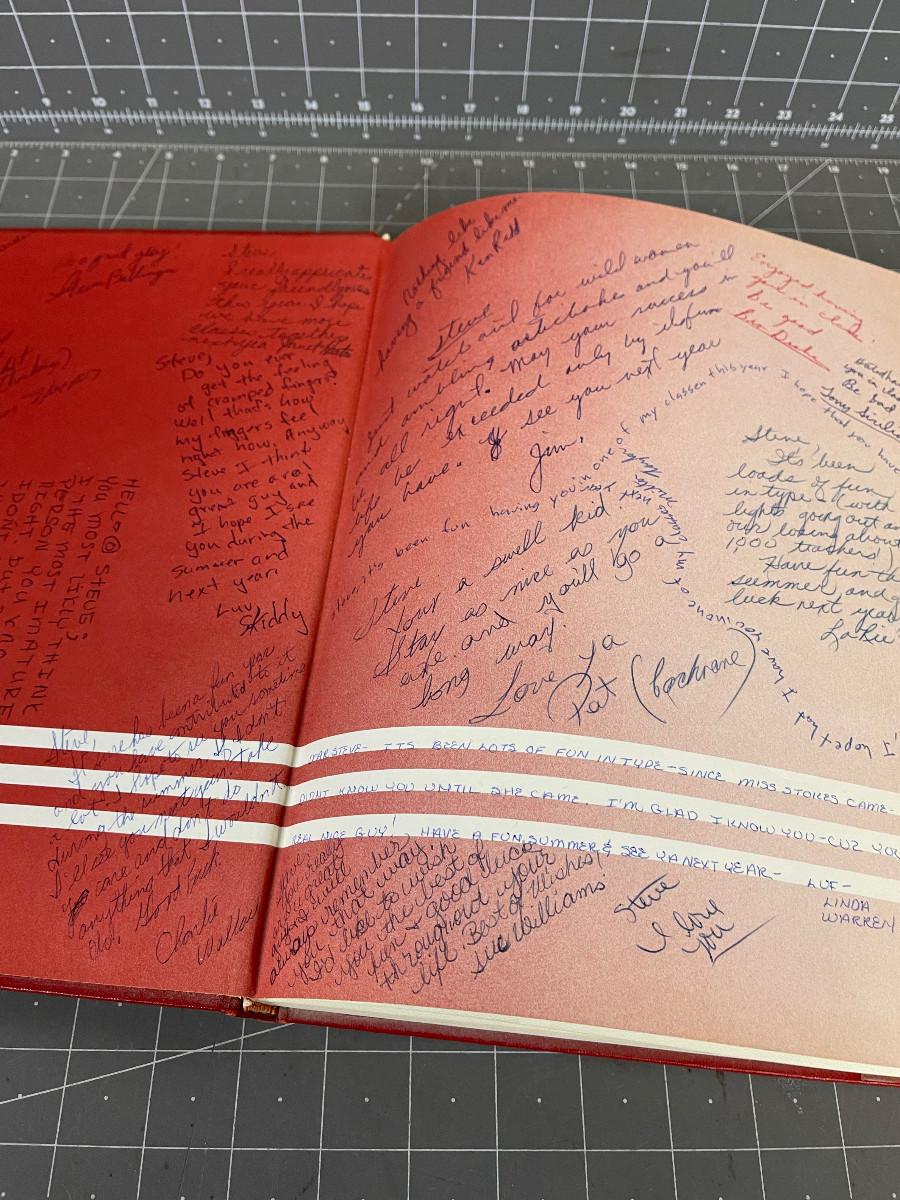 a great guy!
Steve
I really appreciate
your friendliness
this year. I hope
we have more
classes together
next year.
Steve,
Do you ever
get the feeling
of cramped fingers?
Well that's how
my fingers feel
right now. Anyway
Steve I think
you are a real
great guy and
I hope I see
you during the
summer and
next year.
Luv,
Skiddy
HELLO STEVE;
YOU MOST LIKLY THINK
I THE MOST IMATURE
PERSON YOU
RIGHT BUT
I DON'T
Steve,
It sure has been a fun year
and you have contributed to it
a lot. I hope to see you sometime
during the summer. If I don't
I'll see you next year. Take
care and don't do
anything that I wouldn't
do. Good luck
Charlie
Wallace
Nothing like
having a friend like me
Ken Redd
Steve
Just watch out for wild women
and ambling artichokes and you'll
be all right. May your success in
life be exceeded only by the fun
you have. I'll see you next year
Jim.
Steve, it's been fun having you in one of my classes this year I hope that you have
I hope that I have you in one of my classes
Steve
Your a swell kid.
Stay as nice as you
are and you'll go a
long way.
Love Ya
Pat (Cochrane)
Enjoyed having
you in class.
Be good
you in class
Be bad
Tony
Steve,
It's been
loads of fun
in type (with
lights going out an
our losing about
1,000 teachers!)
Have fun th
summer, and g
luck next year
DEAR STEVE- ITS BEEN LOTS OF FUN IN TYPE-SINCE MISS STOKES CAME-
DIDNT KNOW YOU UNTIL SHE CAME. I'M GLAD I KNOW YOU-CUZ YOU
REAL NICE GUY! HAVE A FUN SUMMER & SEE YA NEXT YEAR- LUF-
LINDA
WARREN
you really
a great
always remember
you that way.
I'd like to wish
you the best of
fun & good luck
throughout your
life. Best of Wishes!
Sue Williams
Steve
I love
you